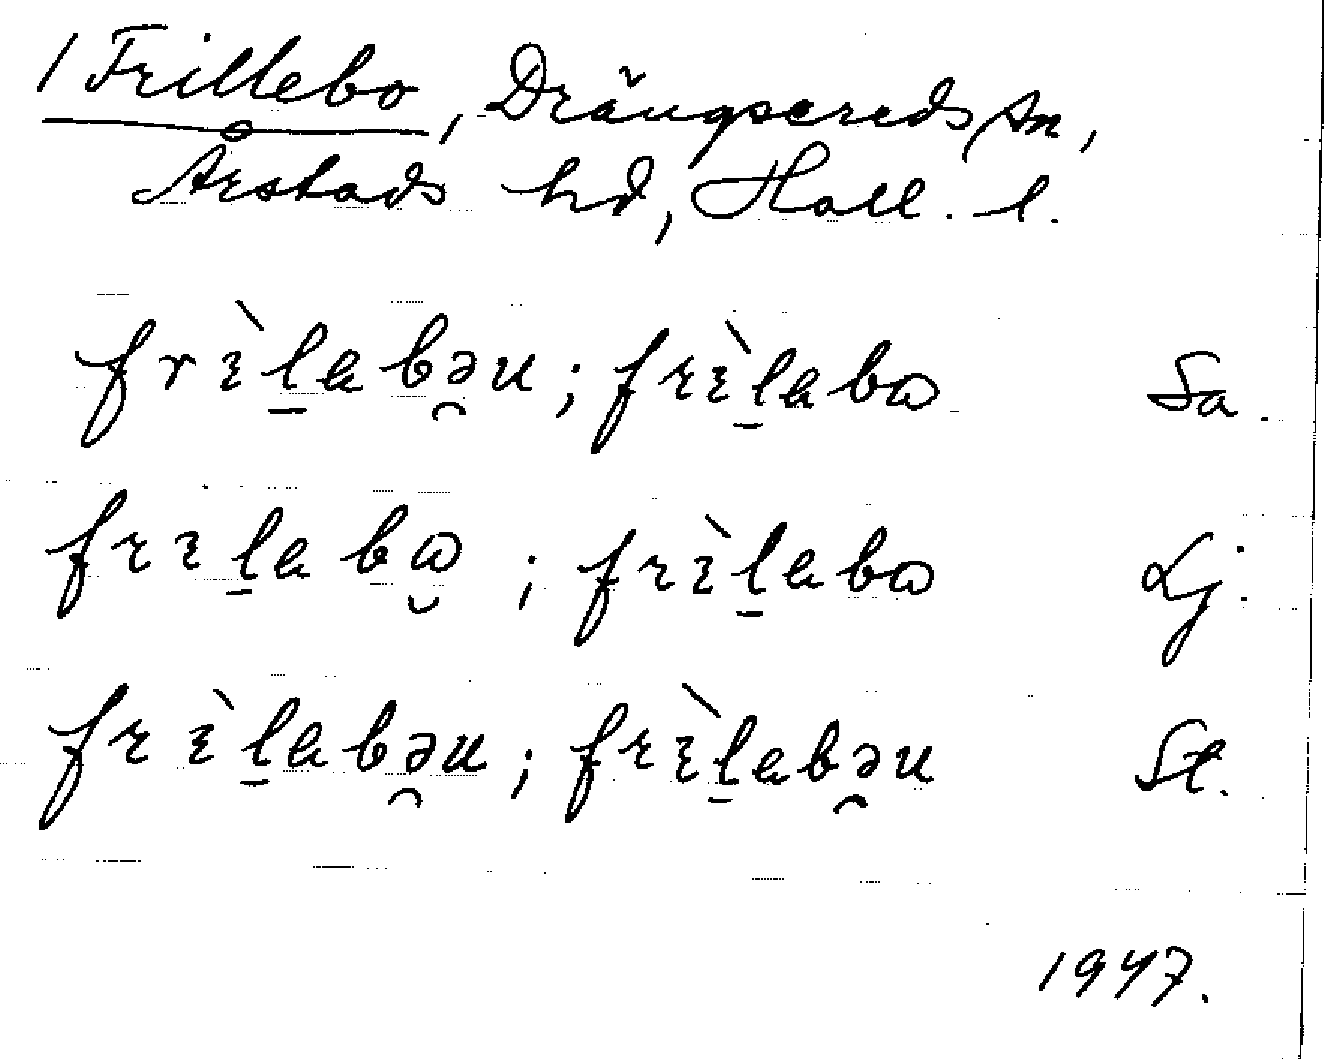 / Frillebo, Drängsereds sn,
Årstads hd, Hall. l.
frìl̠abə̯u; frìl̠abɷ Sa.
fril̠abɷ̮; frìl̠abɷ Lj.
frìl̠abə̯u; frìl̠abə̯u St.
1947.